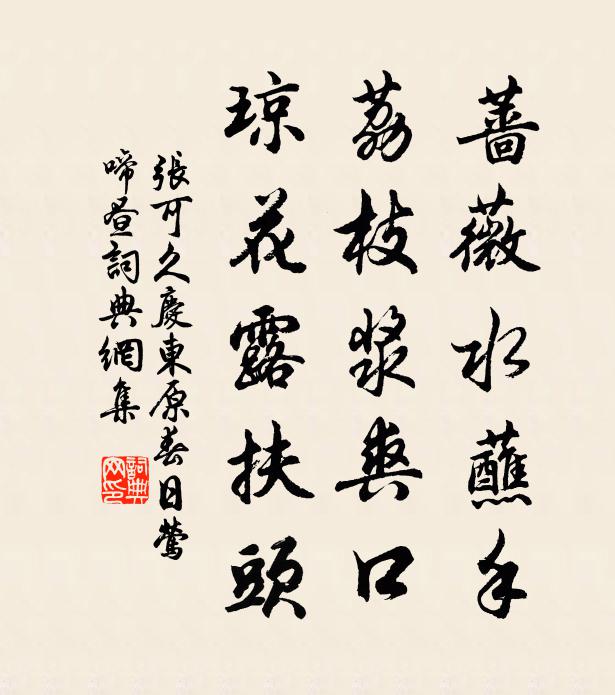 薔薇水蘸手
荔枝漿爽口
瓊花露扶頭
張可久慶東原春日鶯
啼晝詞典網集
詞典
网印